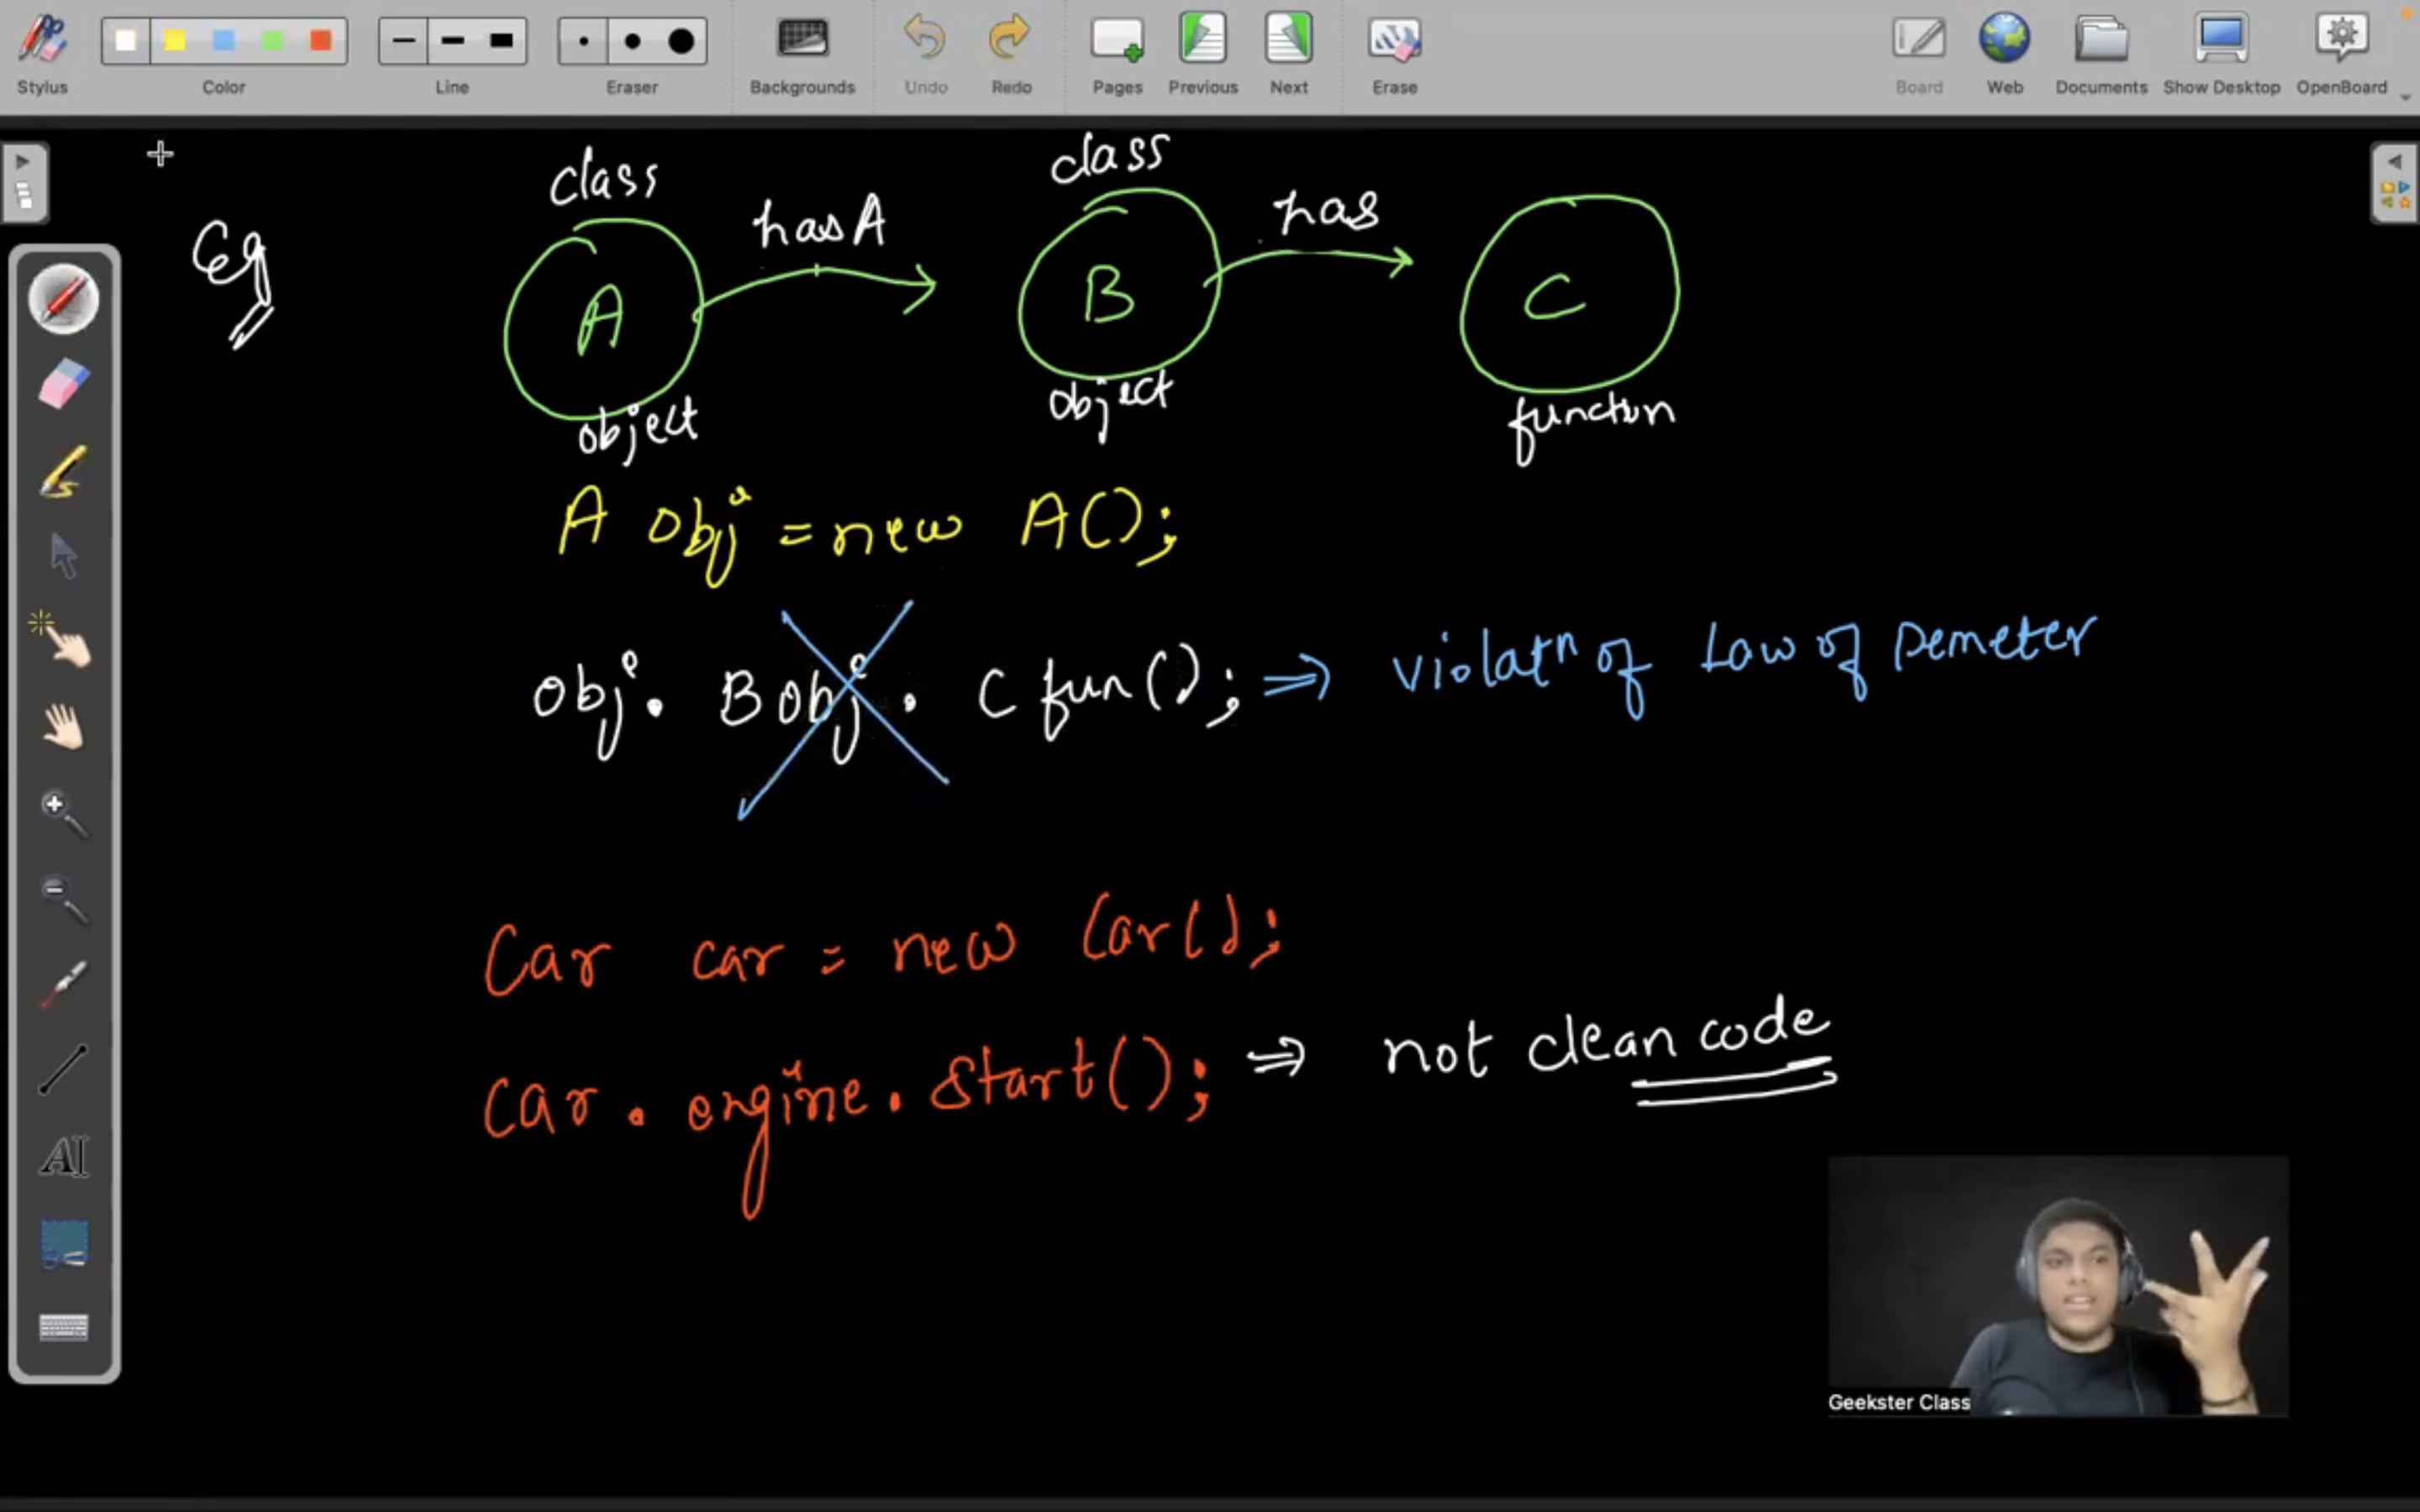 Stylus Color Line Eraser Backgrounds Undo Redo Pages Previous Next Erase Board Web Documents Show Desktop OpenBoard
class class
Eg hasA has
A B C
object object function
A obj = new A();
obj. Bobj. C fun(); ⇒ violatn of Law of Demeter
Car car = new Car();
Car. engine. Start(); ⇒ not clean code
AI
Geekster Class